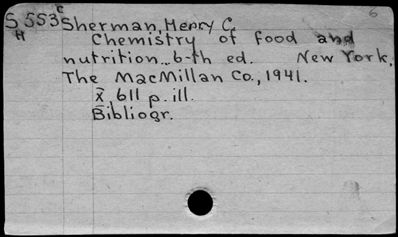 S553c Sherman, Henry C. 6
H Chemistry of food and
nutrition... 6-th ed. New York,
The MacMillan Co., 1941.
x, 611 p. ill.
Bibliogr.